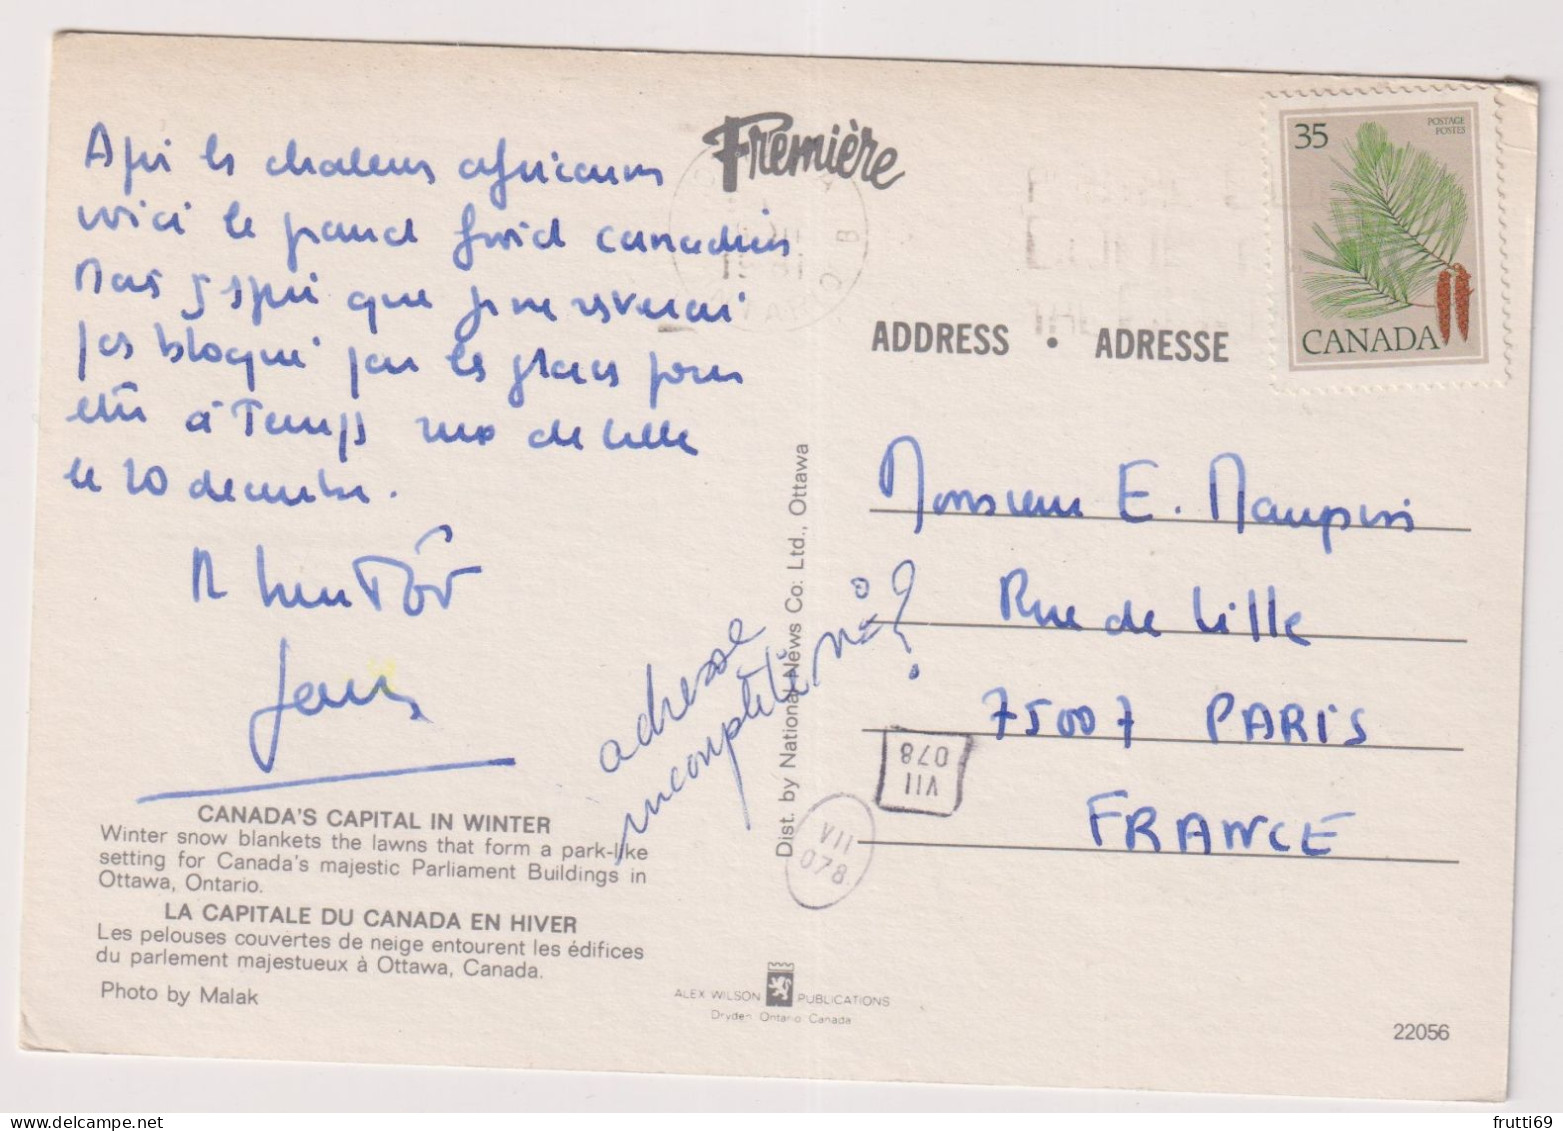 Après les chaleurs africaines
voici le grand froid canadien
Mais j'espère que je ne serai
pas bloqué par les glaces pour
être à Temps rue de Lille
le 20 decembre.
A bientôt
Jean
CANADA'S CAPITAL IN WINTER
Winter snow blankets the lawns that form a park-like
setting for Canada's majestic Parliament Buildings in
Ottawa, Ontario.
LA CAPITALE DU CANADA EN HIVER
Les pelouses couvertes de neige entourent les édifices
du parlement majestueux à Ottawa, Canada.
Photo by Malak
Première
Dist. by National News Co: Ltd., Ottawa
adresse
incomplète nº?
VII
078
VII
078
ALEX WILSON PUBLICATIONS
Dryden Ontario Canada
35
POSTAGE
POSTES
CANADA
ADDRESS • ADRESSE
Monsieur E. Maupin
Rue de Lille
75007 PARIS
FRANCE
22056
frutti69